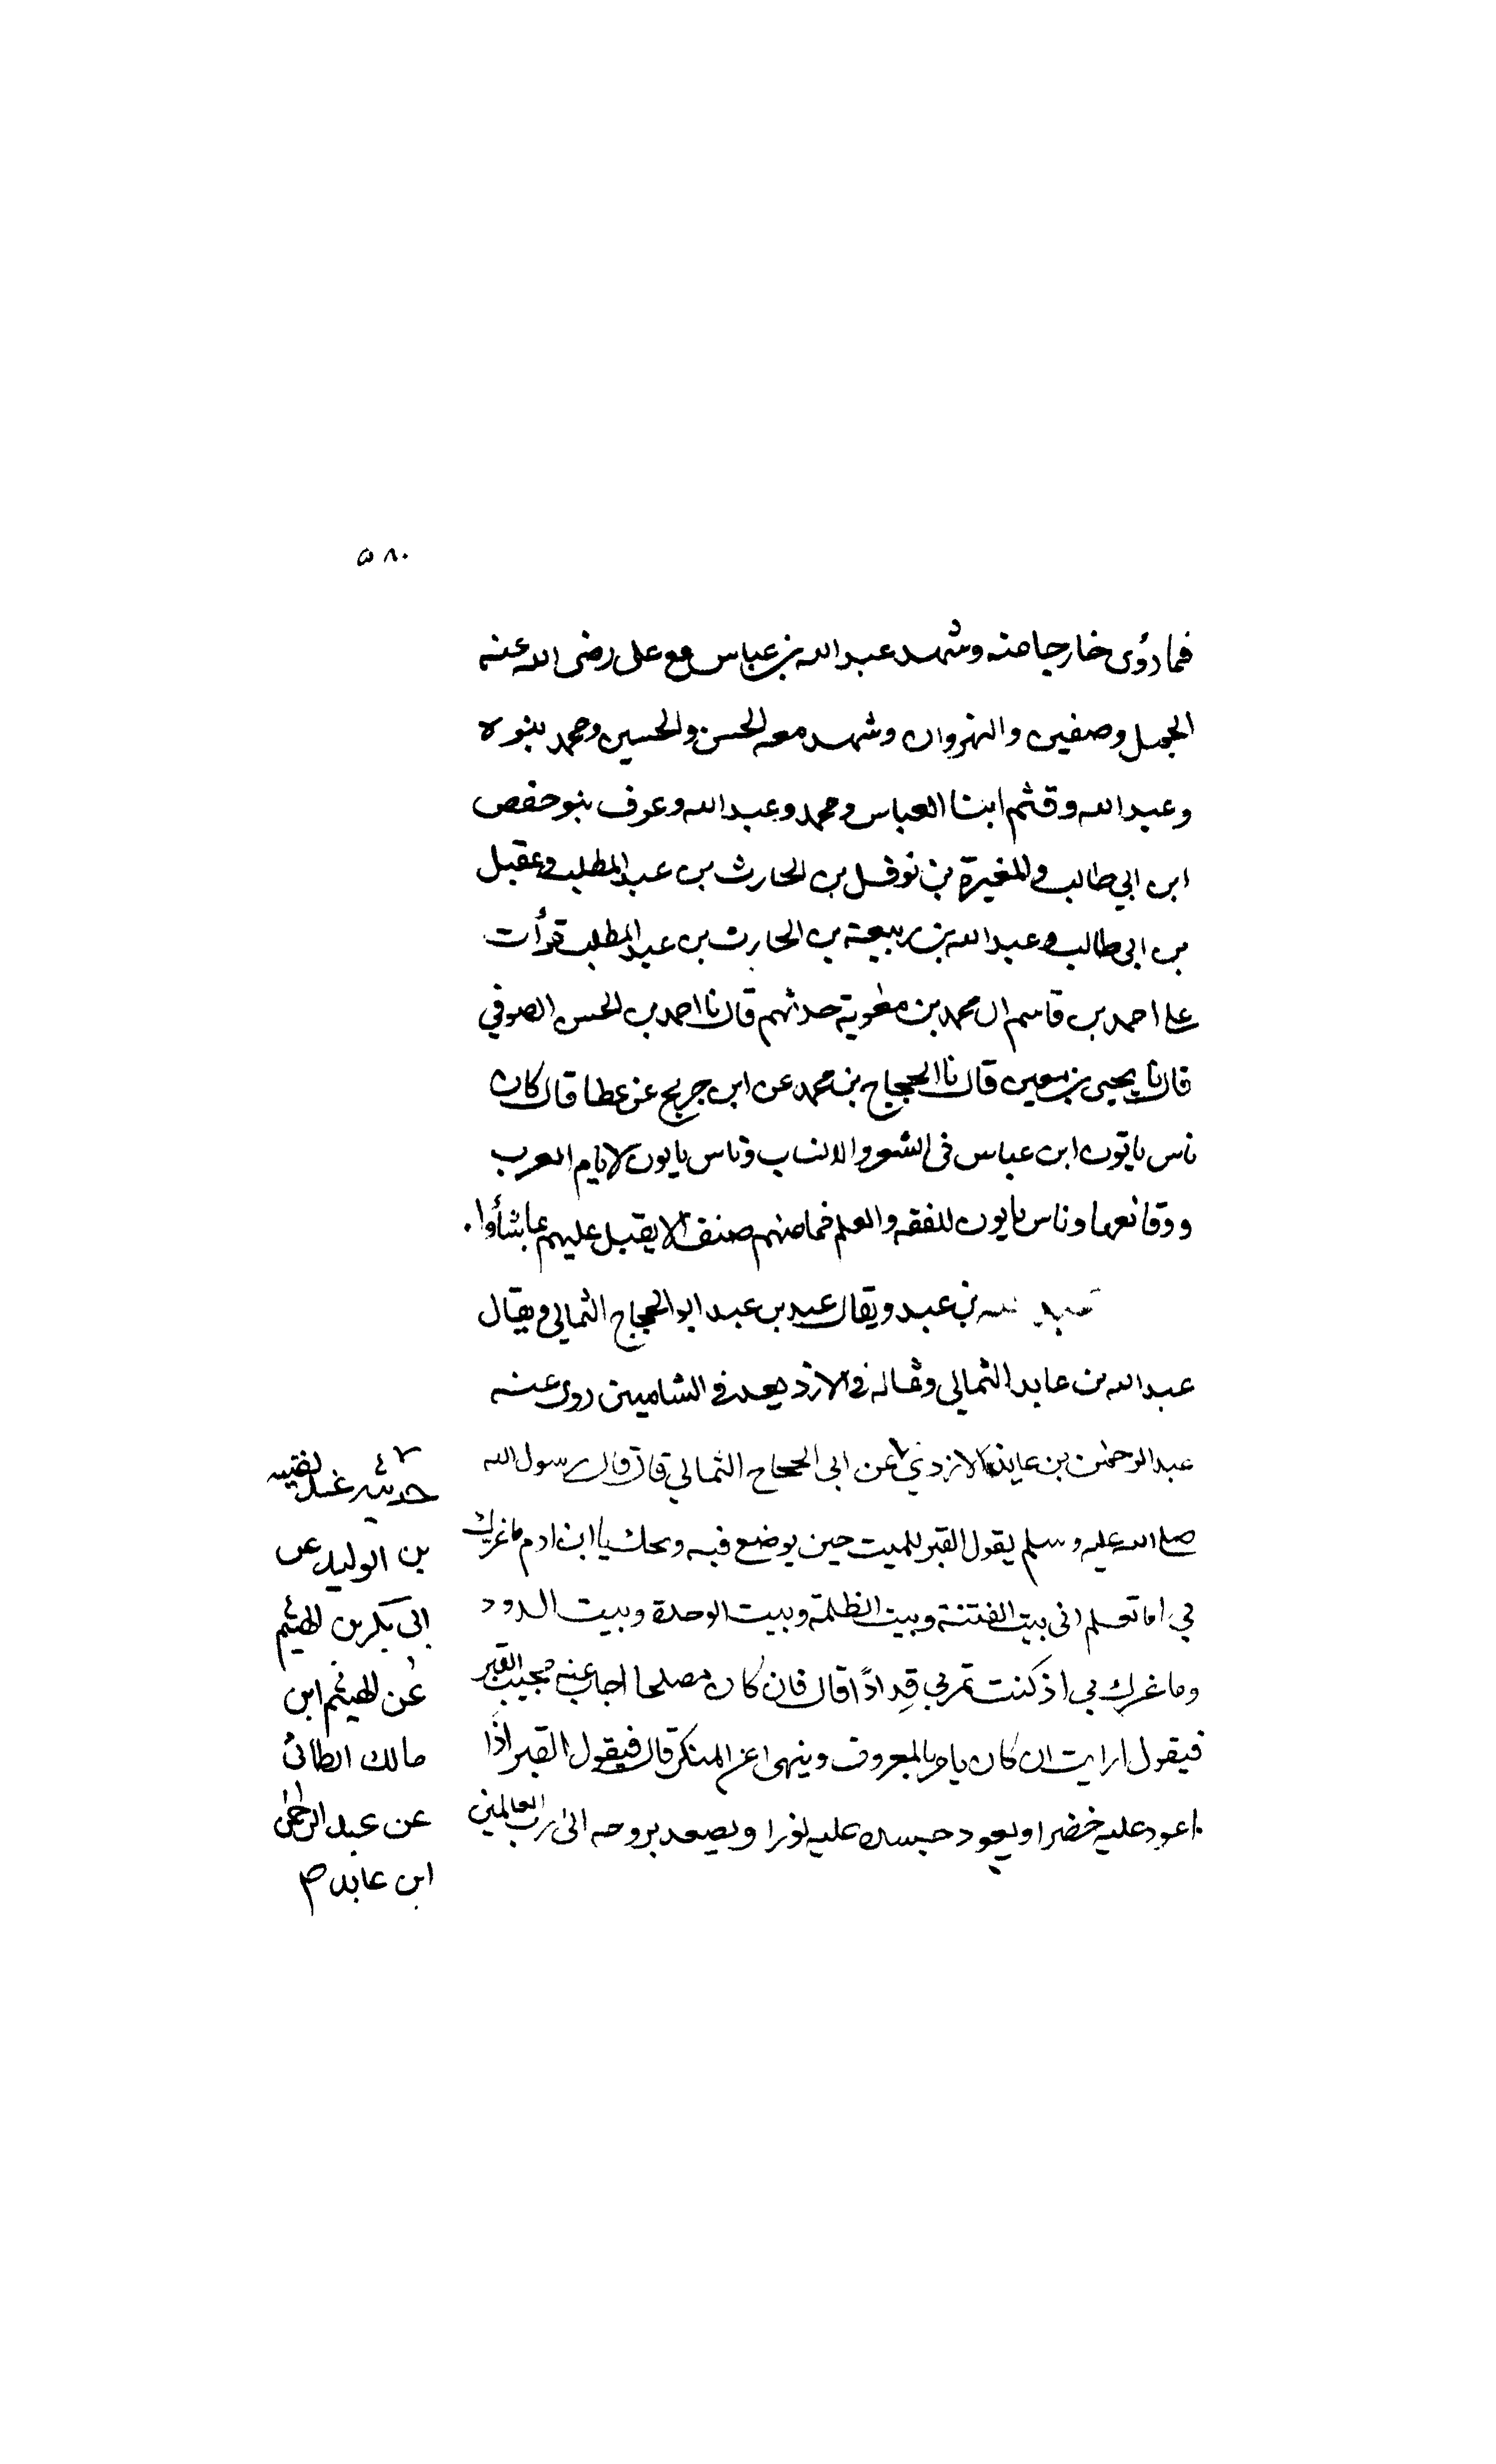 ٥٨٠
فما رؤى خارجا منه وشهد عبد الله بن عباس مع على رضى الله عنه
الجمل وصفين والنهروان وشهد معه الحسن والحسين ومحمد بنوه
وعبد الله وقثم ابنا العباس ومحمد وعبد الله وعوف بنو جعفر
ابن ابي طالب والمغيرة بن نوفل بن الحارث بن عبد المطلب وعقيل
بن ابى طالب وعبد الله بن ربيعة بن الحارث بن عبد المطلب قرأت
على احمد بن قاسم ان محمد بن معوية حدثهم قال نا احمد بن الحسن الصوفي
قال نا يحيى بن معين قال نا الحجاج بن محمد عن ابن جريج عن عطا قال كان
ناس ياتون ابن عباس فى الشعر والانساب وناس ياتون لايام العرب
ووقائعها وناس ياتون للفقه والعلم فما منهم صنف الا يقبل عليهم بما شأوا.
بن عبد ويقال عبد بن عبد ابو الحجاج الثمالي ويقال
عبد الله بن عابد الثمالي وثماله في الازد يعد في الشاميين روى عنه
عبد الرحمن بن عايذ الازدي عن ابى الحجاج الثمالي قال قال رسول الله
صلى الله عليه وسلم يقول القبر للميت حين يوضع فيه ويحك يا ابن ادم ما غرك
بي اما تعلم انى بيت الفتنة وبيت الظلمة وبيت الوحدة وبيت الدود
وما غرك بي اذ كنت تمر بي فدادًا قال فان كان مصلحا اجاب عنه مجيب القبر
فيقول ارايت ان كان يامر بالمعروف وينهى عن المنكر قال فيقول القبر اذًا
اعود عليه خضرا ويعود جسده عليه نورا ويصعد بروحه الى رب العالمين
حديثه عند بقيه
بن الوليد عن
ابى بكر بن الهيثم
عن الهيثم ابن
مالك الطائى
عن عبد الرحمن
ابن عايد صح